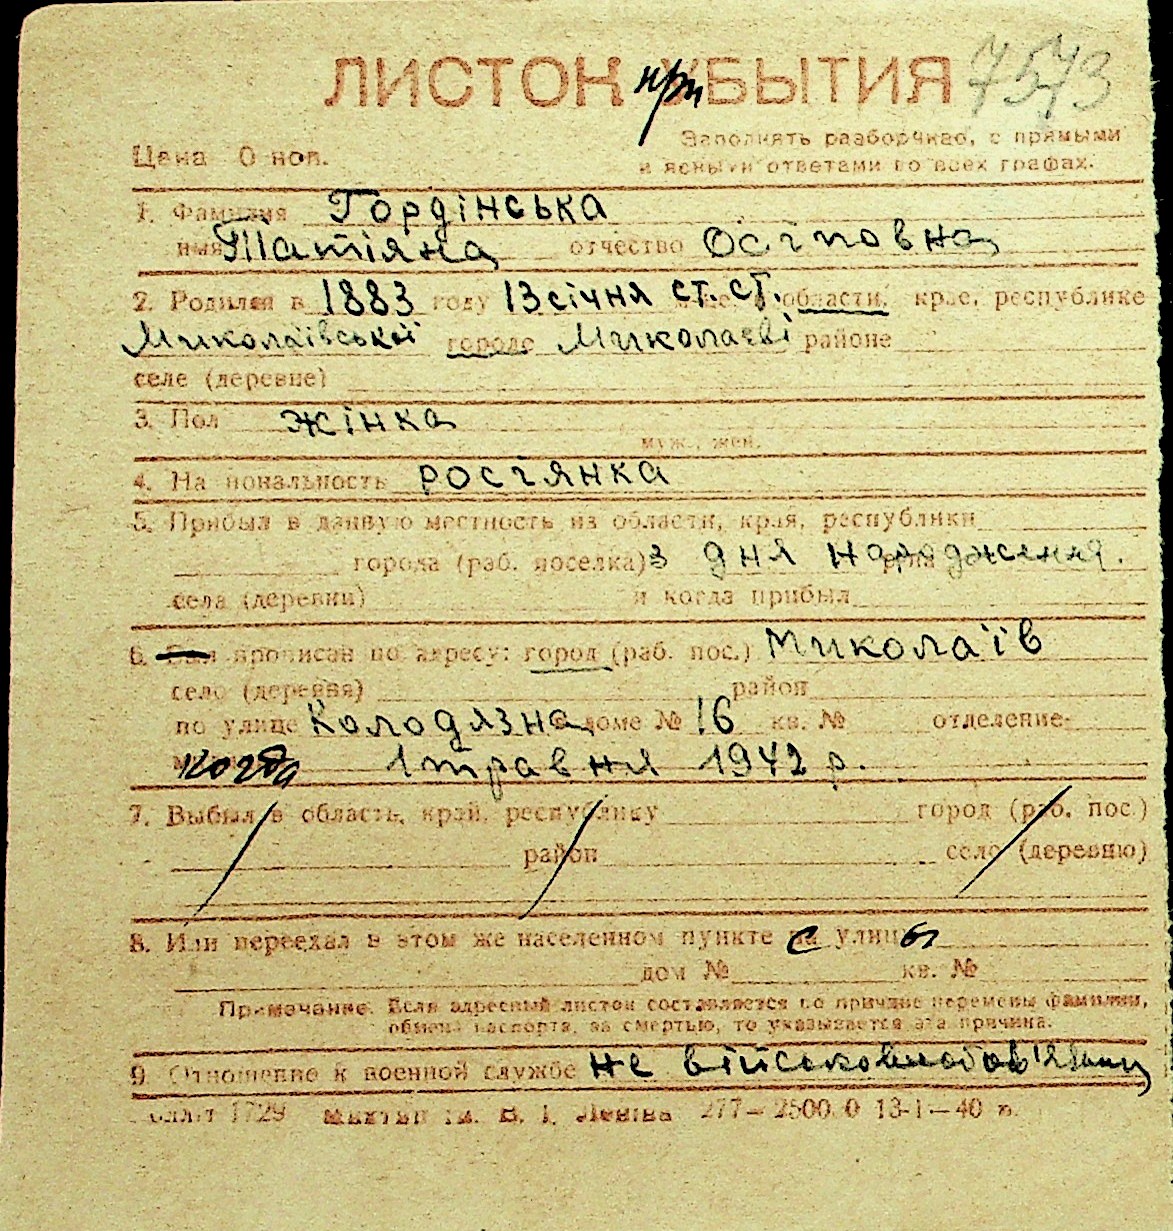 ЛИСТОК при УБЫТИЯ 7573
Цена 0 коп.
Заполнять разборчиво, с прямыми
и ясными ответами во всех графах.
1. Фамилия Гордінська
имя Татіяна отчество Осіповна
2. Родился в 1883 году 13 січня ст. ст. области, крае, республике
Миколаївській городе Миколаєві районе
селе (деревне)
3. Пол жінка
муж., жен.
4. Национальность росіянка
5. Прибыл в данную местность из области, края, республики
города (раб. поселка) з дня народження.
села (деревни) и когда прибыл
6. Был прописан по адресу: город (раб. пос.) Миколаїв
село (деревня) район
по улице Колодязна доме № 16 кв. № отделение
когда 1 травня 1942 р.
7. Выбыл в область, край, республику город (раб. пос.)
район село (деревню)
8. Или переехал в этом же населенном пункте с улицы
дом № кв. №
Примечание. Если адресный листок составляется по причине перемены фамилии,
обмена паспорта, за смертью, то указывается эта причина.
9. Отношение к военной службе не
1729 ім. В. І. Леніна 277—2500.0 13-I—40 р.